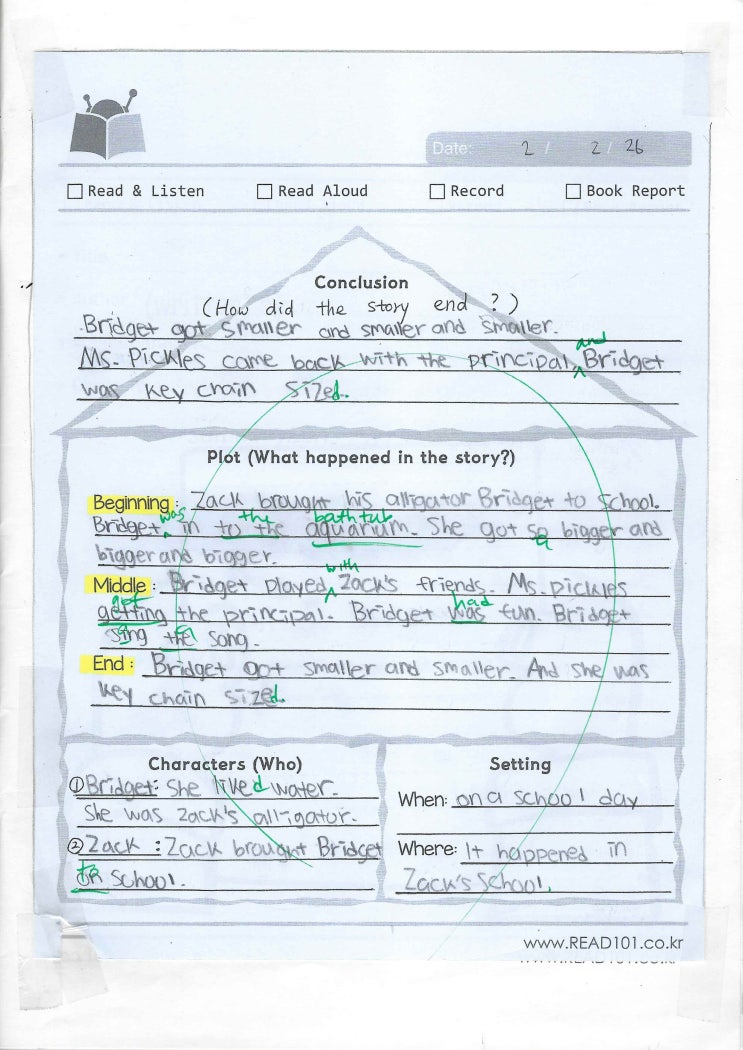 Date: 2 / 2 / 26
Read & Listen Read Aloud Record Book Report
Conclusion
(How did the story end ?)
Bridget got smaller and smaller and smaller.
and
Ms. Pickles came back with the principal, Bridget
was key chain sized.
Plot (What happened in the story?)
Beginning : Zack brought his alligator Bridget to school.
was the bath tub
Bridget in to the aquarium. She got so bigger and
bigger and bigger.
with
Middle : Bridget played Zack's friends. Ms. pickles
got had
getting the principal. Bridget was fun. Bridget
sang the song.
a
End : Bridget got smaller and smaller. And she was
key chain sized.
Characters (Who)
① Bridget: She liked water.
She was Zack's alligator.
② Zack : Zack brought Bridget
to
school.
Setting
When: on a school day
Where: It happened in
Zack's School.
www.READ101.co.kr
www.READ101.co.kr